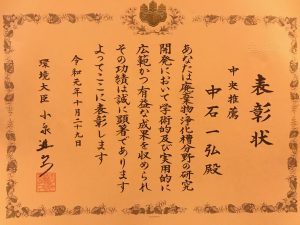 表彰状
中央推薦
中石一弘殿
あなたは廃棄物・浄化槽分野の研究
開発において学術的及び実用的に
広範かつ有益な成果を収められ
その功績は誠に顕著であります
よってここに表彰します
令和元年十月二十九日
環境大臣 小泉進次郎